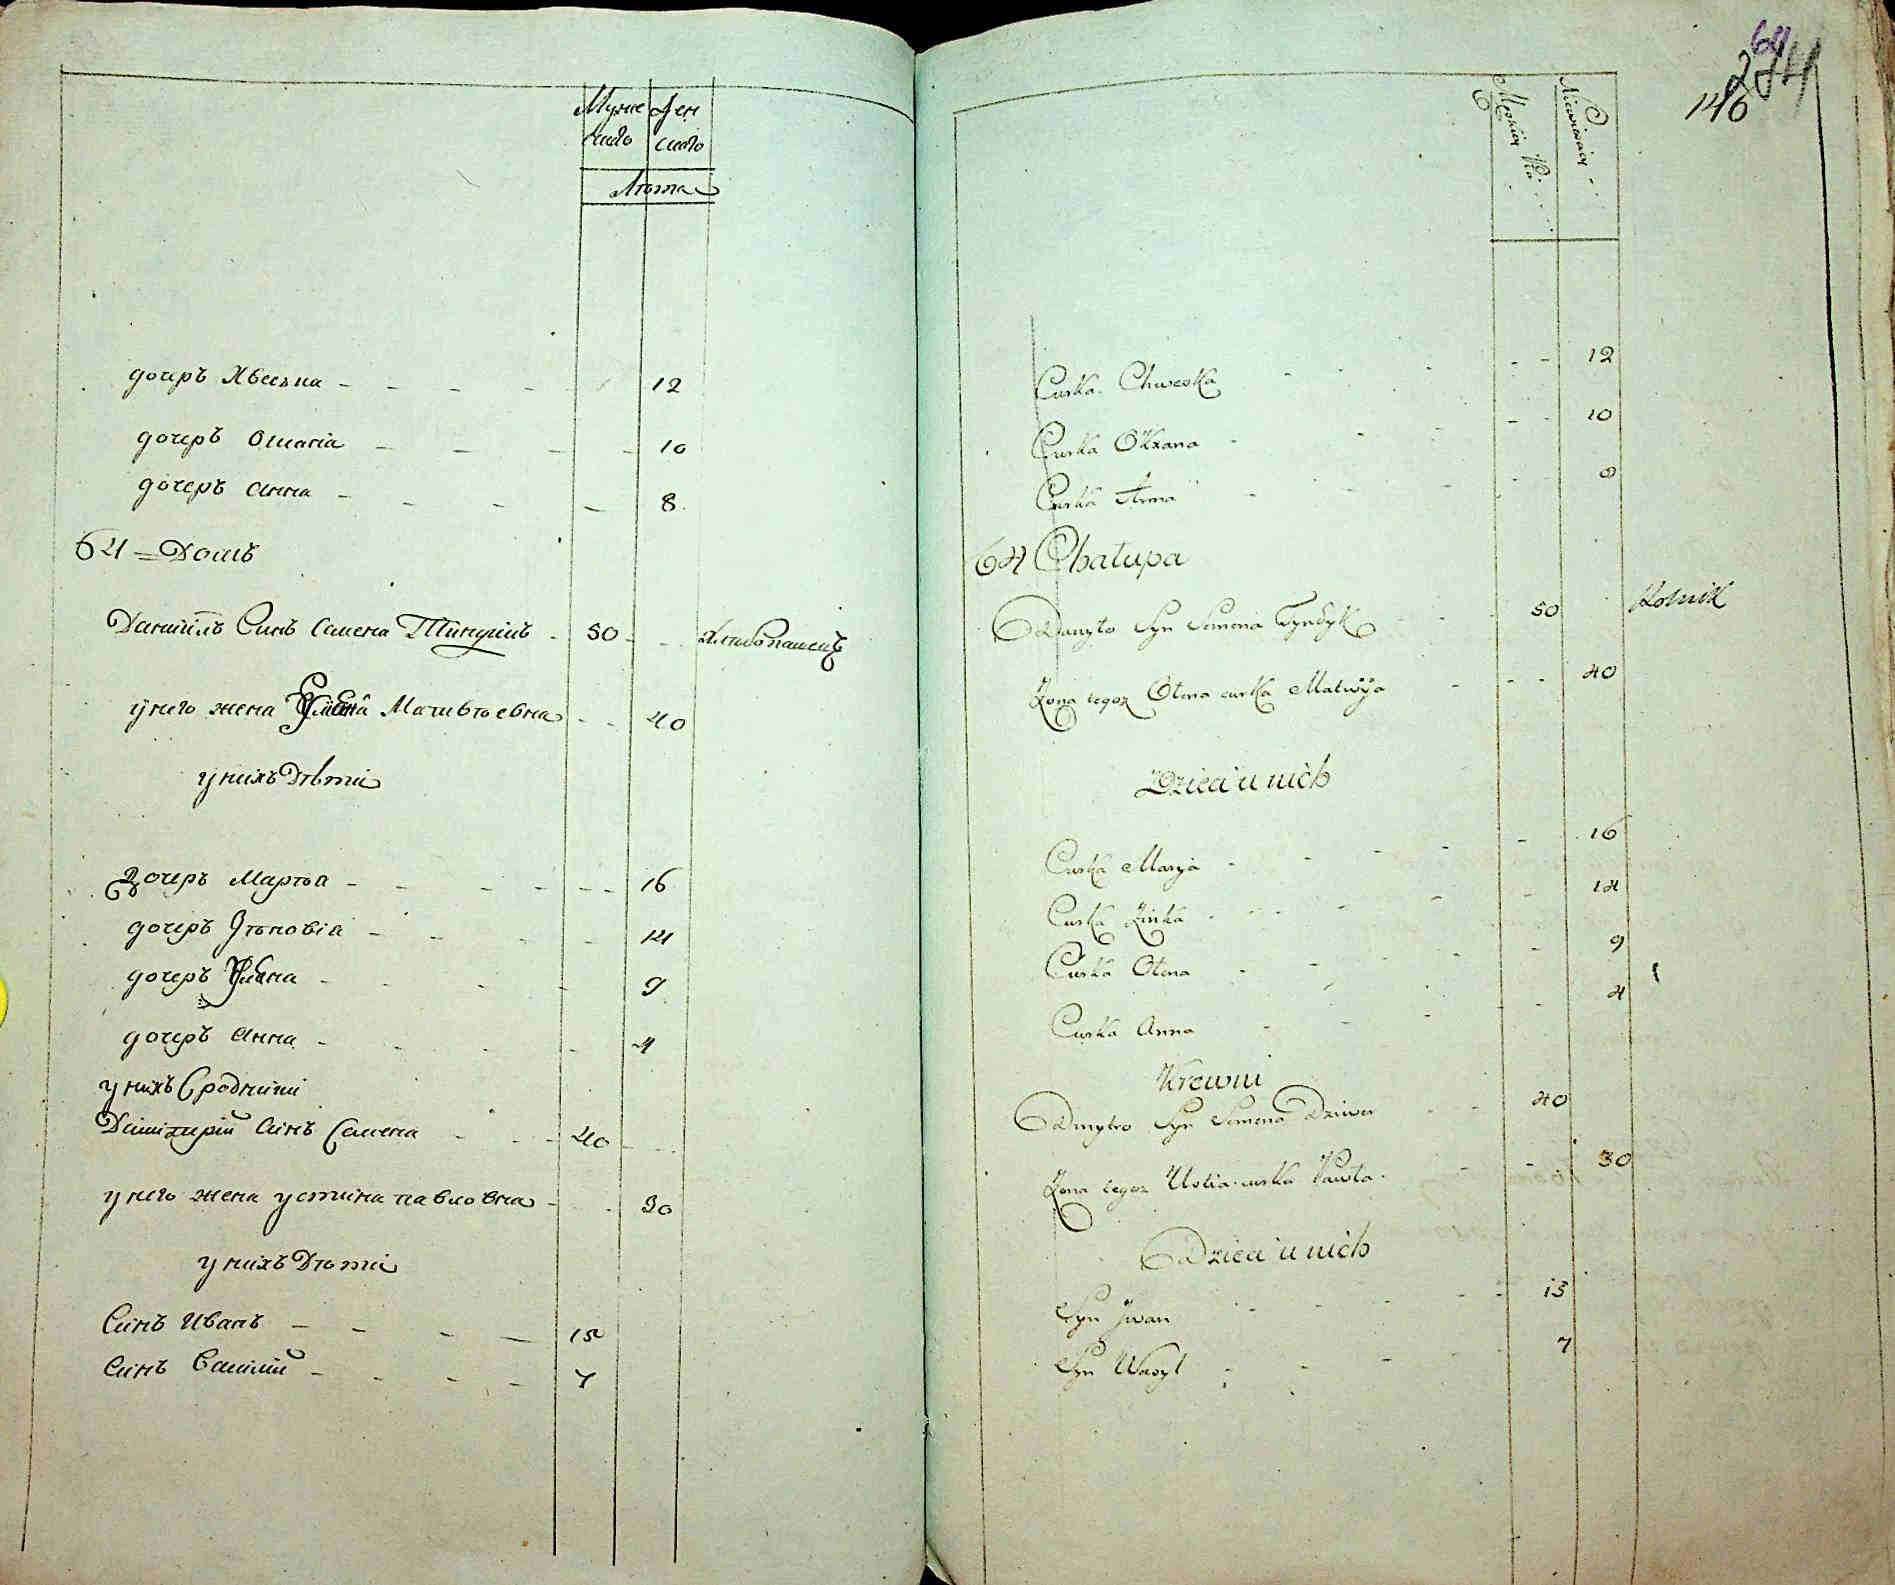 Муже Жен
ско ско
Лѣта
дочеръ Хвеска 12
дочеръ Оксана 10
дочеръ Анна 8
64 Домъ
Данїилъ Синъ Семена 50 Хлѣбопашецъ
у него жена Матвѣевна 40
у нихъ Дѣти
дочеръ Марѳа 16
дочеръ Зѣновїа 14
дочеръ 9
дочеръ Анна 4
у нихъ Сродники
Димитрій Синъ Семена 40
у него жена устина павловна 30
у нихъ Дѣти
Синъ Иванъ 15
Синъ Василій 7
64
274
146
Męskiey Płci
Niewieściey
Curka Chweska 12
Curka Oxana 10
Curka Anna 8
64 Chałupa
Danyło Syn Semena Tyndyk 50 Rolnik
Żona tegoż Ołena curka Matwija 40
Dzieci u nich
Curka Marya 16
Curka Zinka 14
Curka Ołena 9
Curka Anna 4
Krewni
Dmytro Syn Semena 40
Żona tegoż Ustia curka Pawła 30
Dzieci u nich
Syn Jwan 15
Syn Wasyl 7